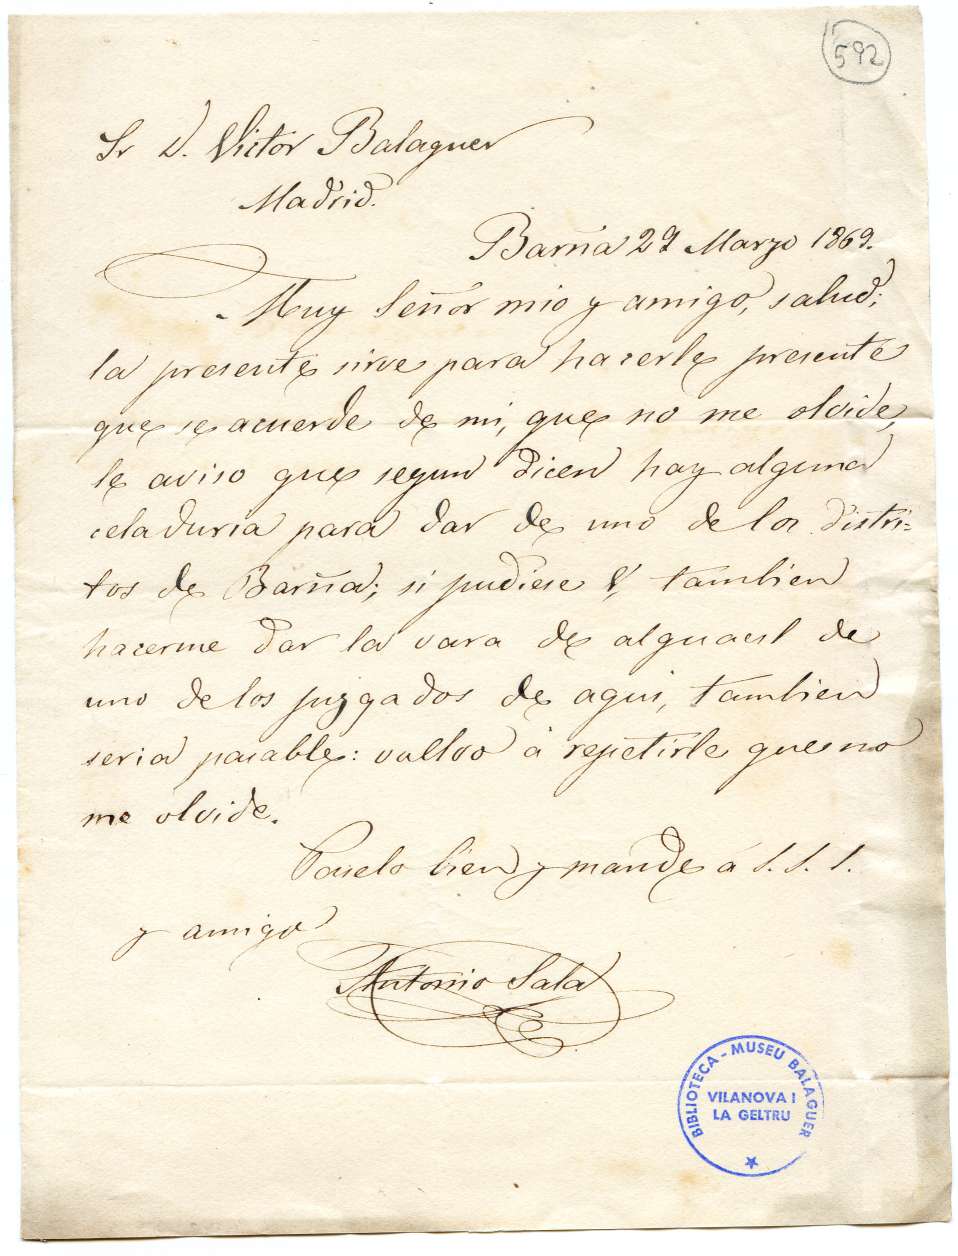 592
Sr D. Victor Balaguer
Madrid.
Barña 27 Marzo 1869.
Muy Señor mio y amigo, salud;
la presente sirve para hacerle presente
que se acuerde de mi, que no me olvide,
le aviso que segun dicen hay alguna
celaduria para dar de uno de los distri=
tos de Barña; si pudiese V, tambien
hacerme dar la vara de alguacil de
uno de los juzgados de aqui, tambien
seria pasable: vuelvo à repetirle que no
me olvide.
Paselo bien y mande a S. S. S.
y amigo
Antonio Sala
BIBLIOTECA - MUSEU BALAGUER
VILANOVA I
LA GELTRU